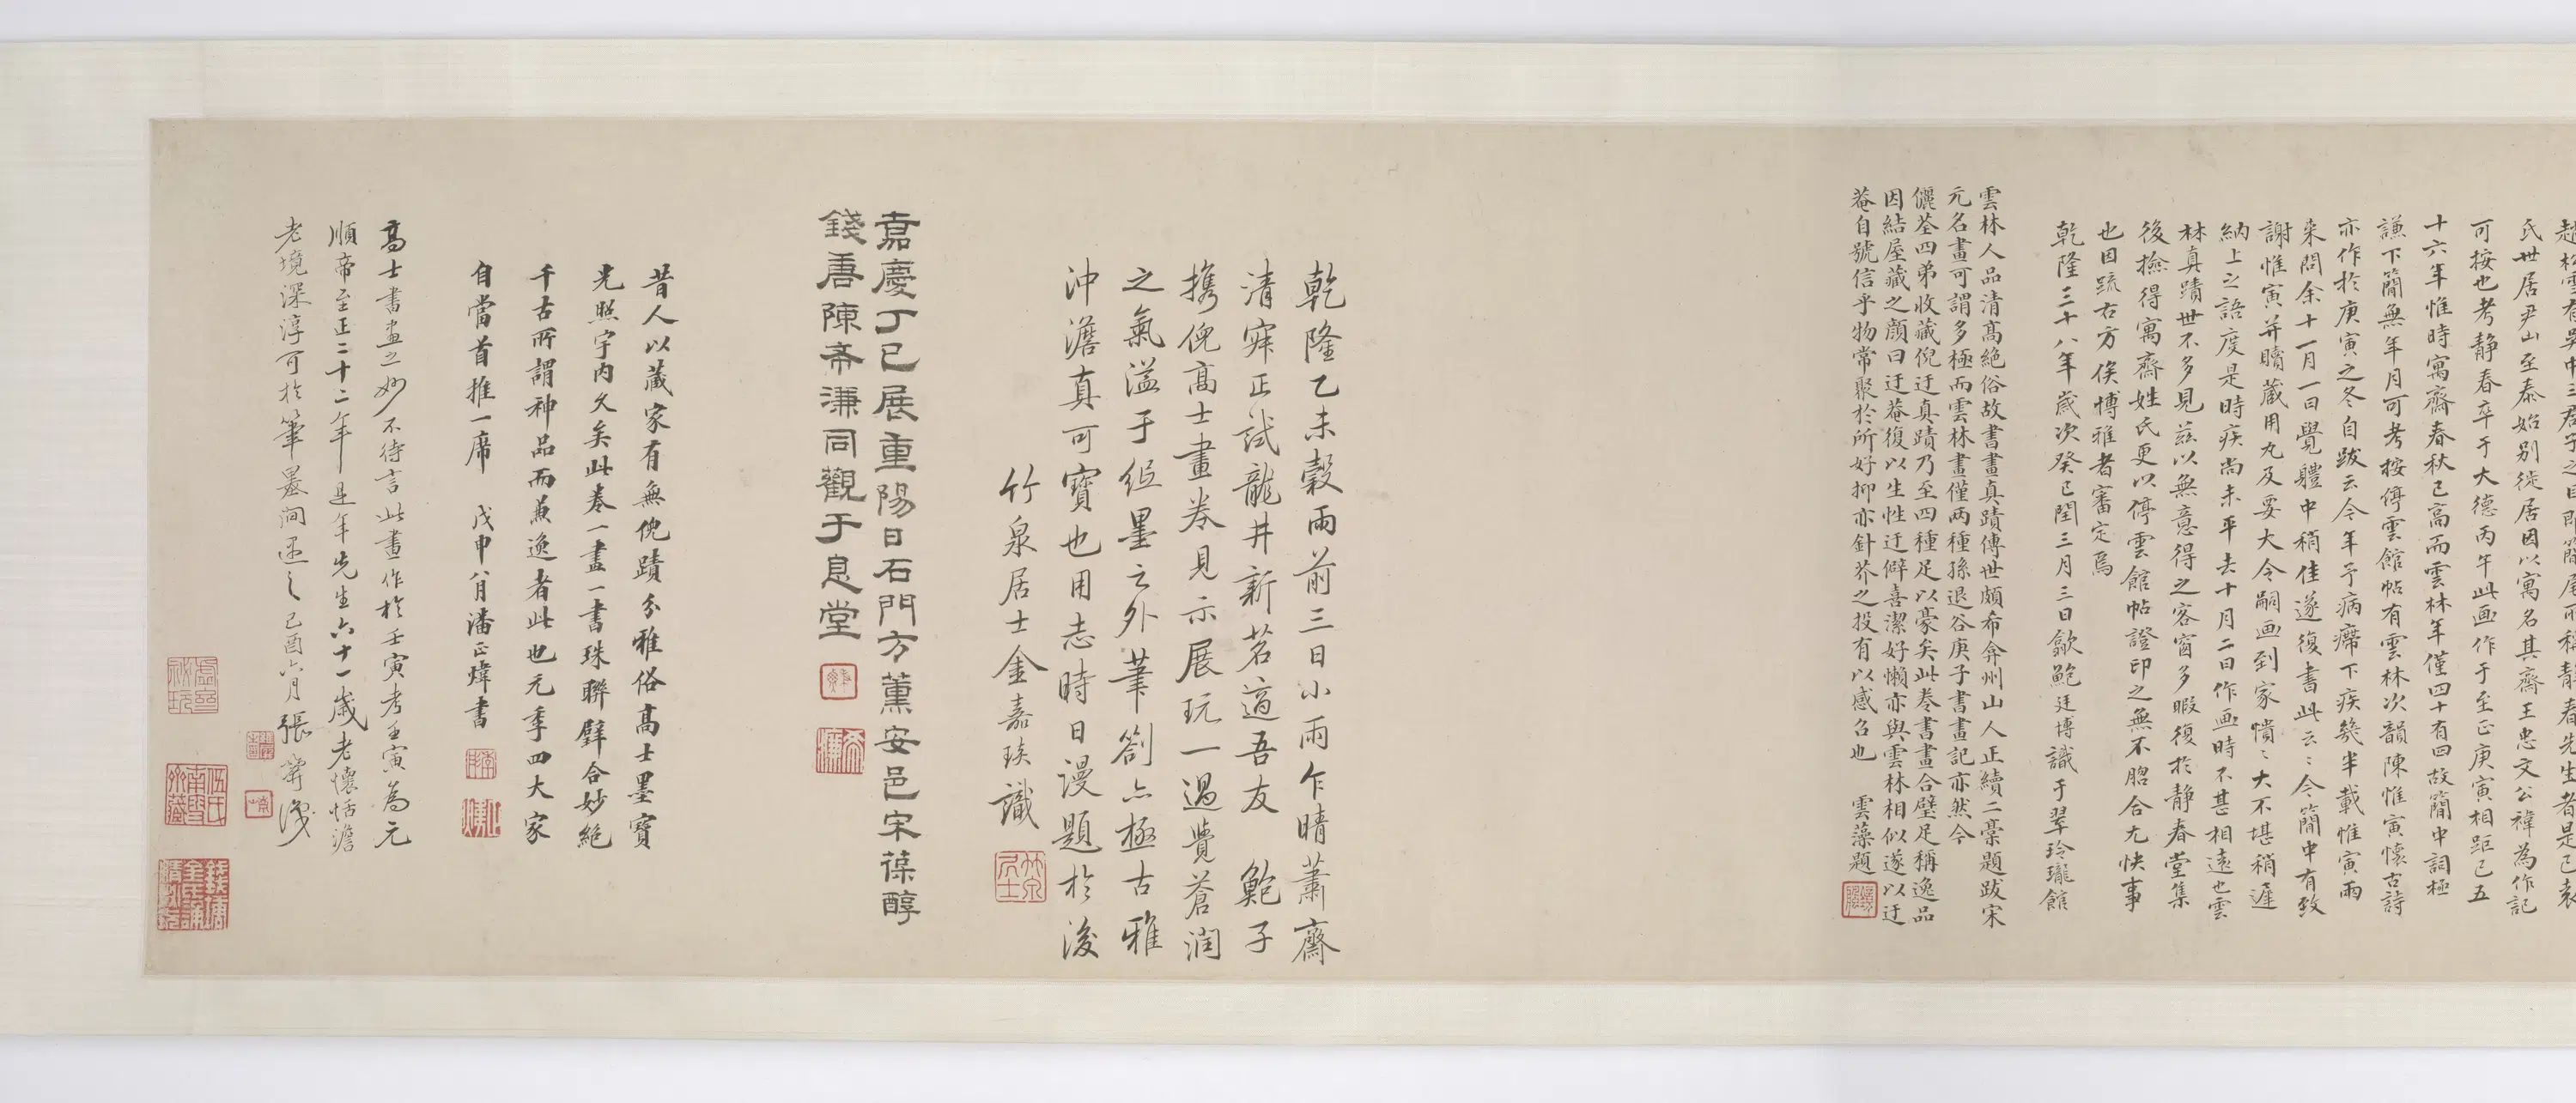 氏世居尹山至泰始別徙居因以寓名其齋王忠文公禕為作記
可按也考靜春卒于大德丙午此画作于至正庚寅相距已五
十六年惟時寓齋春秋已高而雲林年僅四十有四故簡中詞極
謙下簡無年月可考按停雲館帖有雲林次韻陳惟寅懷古詩
亦作於庚寅之冬自跋云今年予病瘵下疾幾半載惟寅兩
來問余十一月一日覺體中稍佳遂復書此云〻今簡中有致
謝惟寅并贖蔵用丸及要大令嗣画到家憒〻大不堪稍遲
納上之語度是時疾尚未平去十月二日作画時不甚相遠也雲
林真蹟世不多見茲以無意得之客窗多暇復於靜春堂集
後撿得寓齋姓氏更以停雲館帖證印之無不脗合尤快事
也因疏右方俟博雅者審定焉
乾隆三十八年歲次癸巳閏三月三日歙鮑廷博識于翠玲瓏館
雲林人品清髙絶俗故書畫真蹟傳世頗希弇州山人正續二藁題跋宋
元名畫可謂多極而雲林畫僅兩種孫退谷庚子書畫記亦然今
儷荃四弟收藏倪迂真蹟乃至四種足以豪矣此卷書畫合璧足稱逸品
因結屋藏之顏曰迂菴復以生性迂僻喜潔好懶亦與雲林相似遂以迂
菴自號信乎物常聚於所好抑亦針芥之投有以感召也 雲藻題
乾隆乙未穀雨前三日小雨乍晴蕭齋
清寂正試龍井新茗適吾友 鮑子
携倪髙士畫卷見示展玩一過覺蒼潤
之氣溢于紙墨之外筆劄亦極古雅
沖澹真可寶也用志時日謾題於後
竹泉居士金嘉琰識
嘉慶丁巳展重陽日石門方薰安邑宋葆醇
錢唐陳希濂同觀于息堂
昔人以蔵家有無倪蹟分雅俗髙士墨寶
光照宇內久矣此卷一畫一書珠聯璧合妙絶
千古所謂神品而兼逸者此也元季四大家
自當首推一席 戊申八月潘正煒書
髙士書畫之妙不待言此畫作於壬寅考壬寅為元
順帝至正二十二年是年先生六十一歲老懷恬澹
老境深淳可於筆墨間遇之己酉六月張
竹泉居士